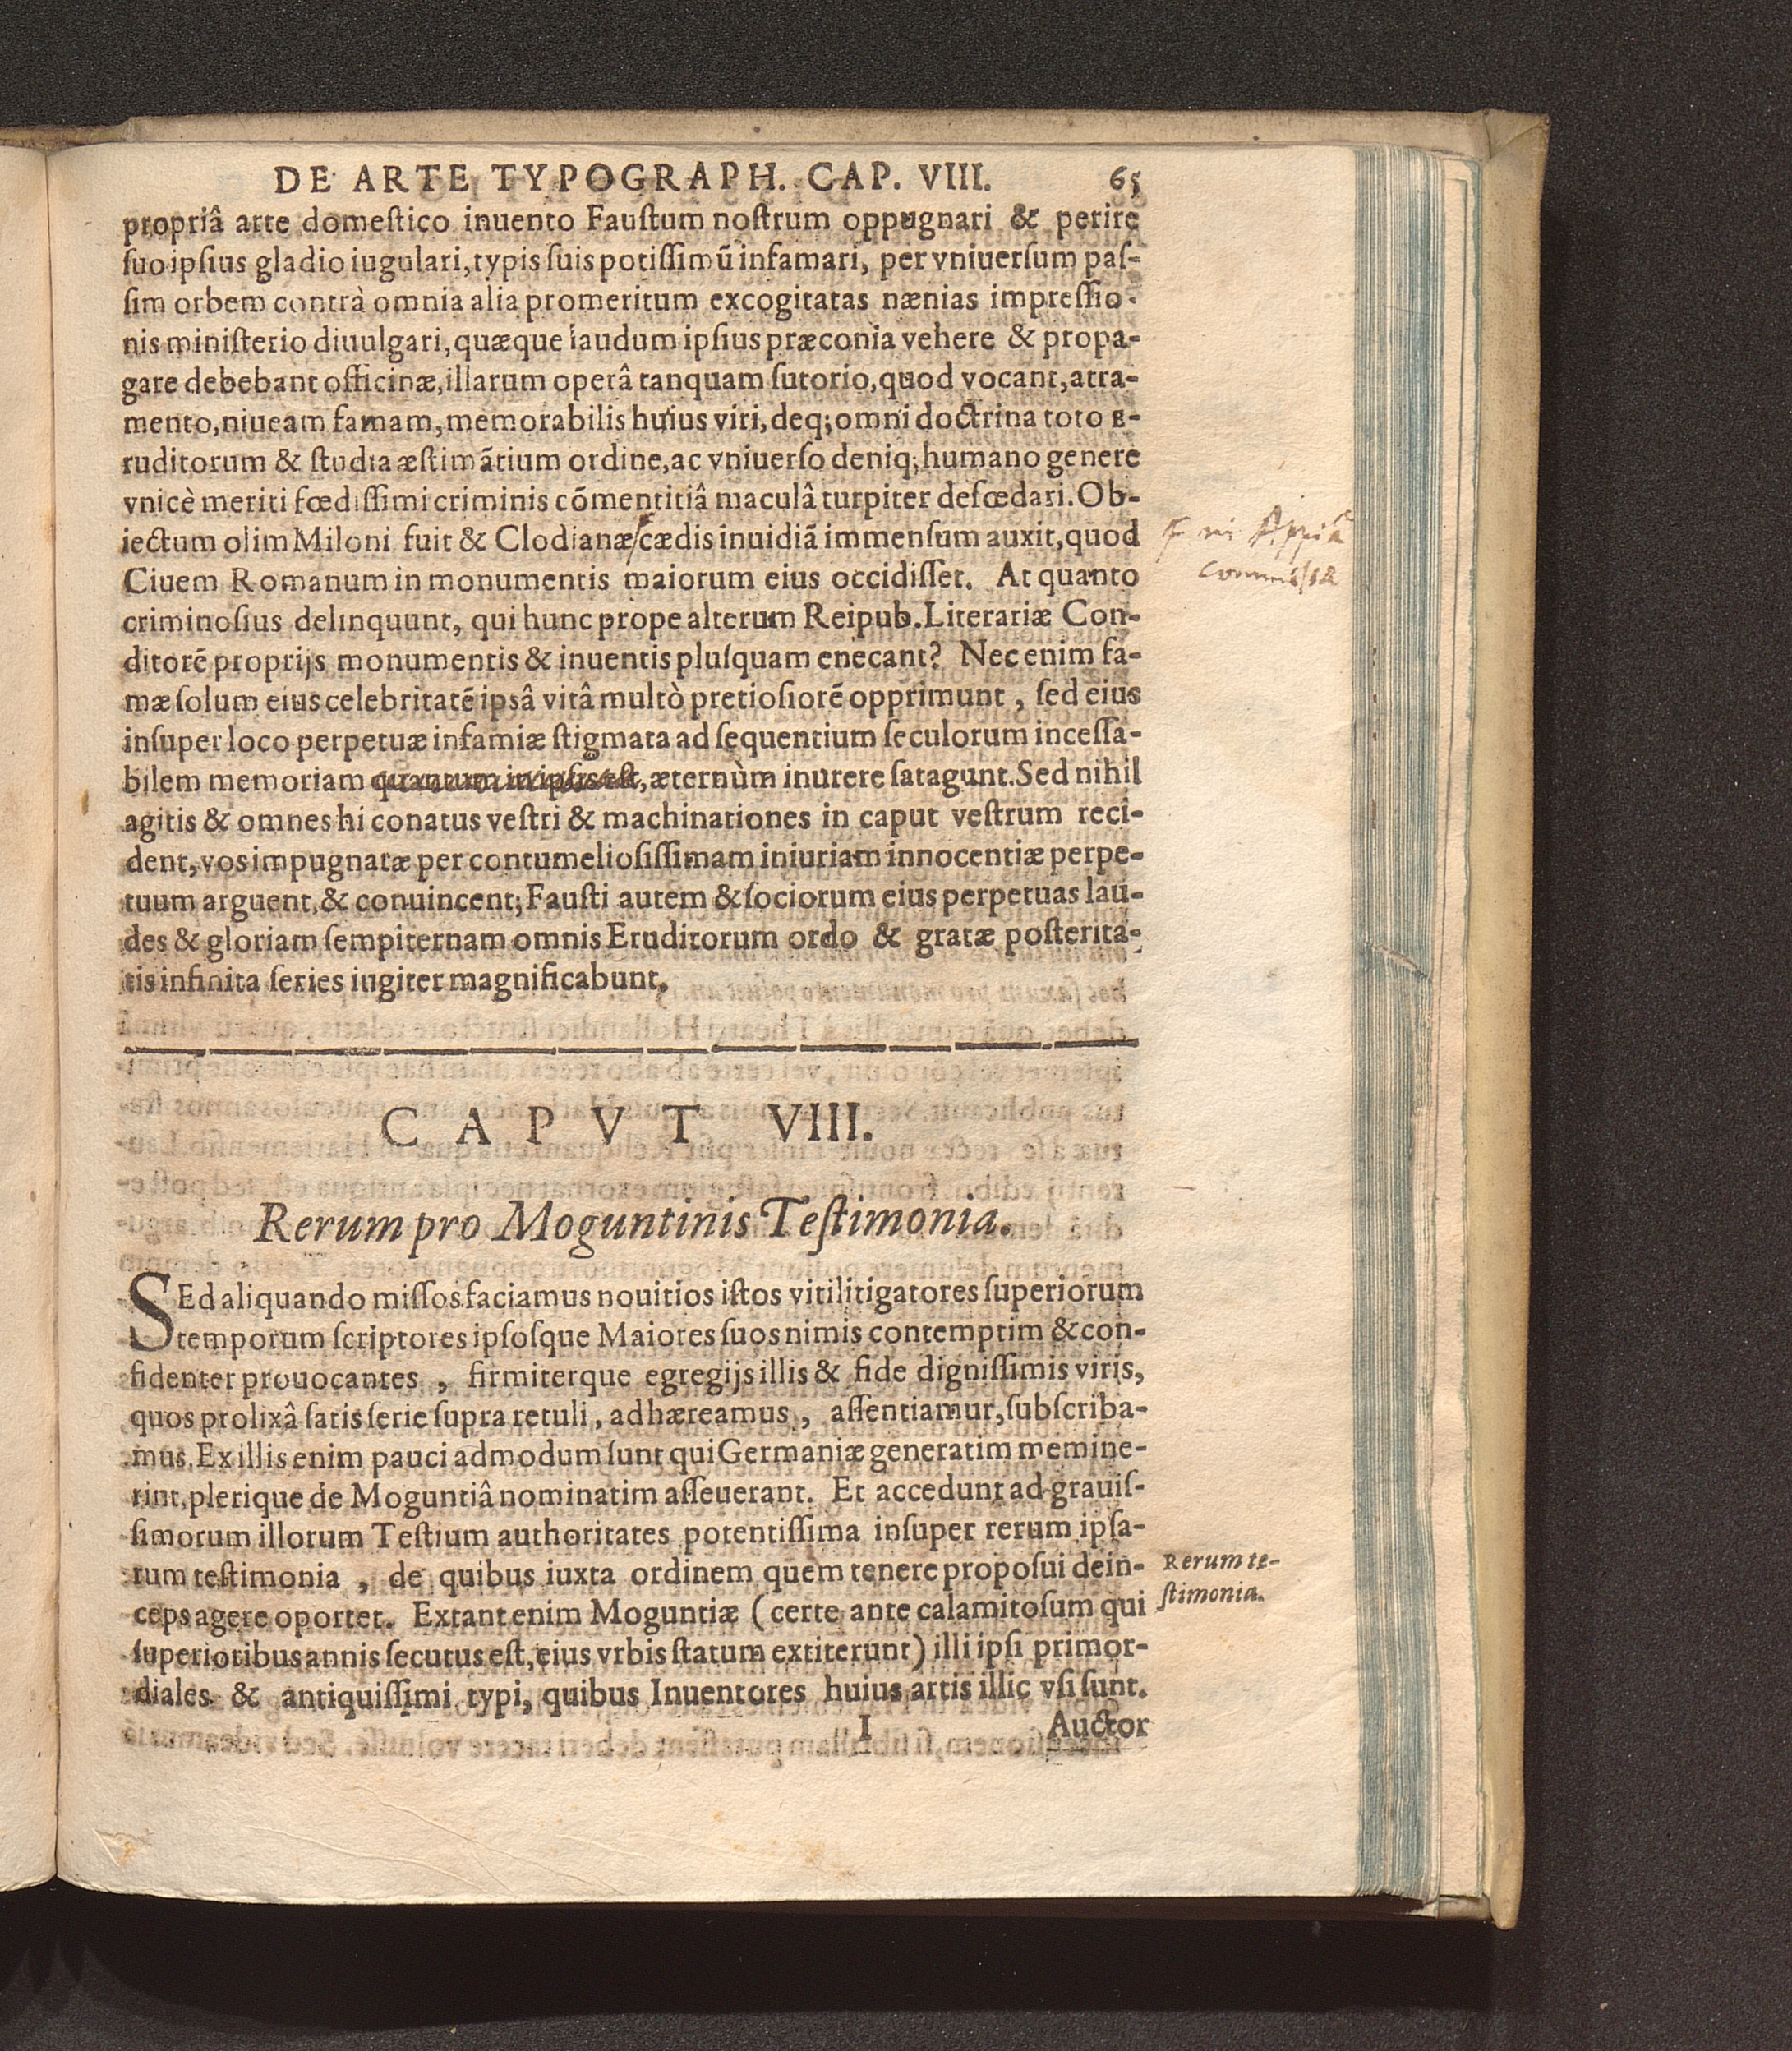 DE ARTE TYPOGRAPH. CAP. VIII. 65
propriâ arte domeſtico inuento Fauſtum noſtrum oppugnari & perire
ſuo ipſius gladio iugulari, typis ſuis potiſſimũ infamari, per vniuerſum paſ-
ſim orbem contrà omnia alia promeritum excogitatas nænias impreſſio-
nis miniſterio diuulgari, quæque laudum ipſius præconia vehere & propa-
gare debebant officinæ, illarum operâ tanquam ſutorio, quod vocant, atra-
mento, niueam famam, memorabilis huius viri, deq; omni doctrina toto E-
ruditorum & ſtudia æſtimãtium ordine, ac vniuerſo deniq; humano genere
vnicè meriti fœdiſſimi criminis cõmentitiâ maculâ turpiter defœdari. Ob-
iectum olim Miloni fuit & Clodianæ cædis inuidiã immenſum auxit, quod
Ciuem Romanum in monumentis maiorum eius occidiſſet. At quanto
criminoſius delinquunt, qui hunc prope alterum Reipub. Literariæ Con-
ditorẽ proprijs monumentis & inuentis pluſquam enecant? Nec enim fa-
mæ ſolum eius celebritatẽ ipsâ vitâ multò pretioſiorẽ opprimunt, ſed eius
inſuper loco perpetuæ infamiæ ſtigmata ad ſequentium ſeculorum inceſſa-
bilem memoriam quantum in ipſis eſt, æternùm inurere ſatagunt. Sed nihil
agitis & omnes hi conatus veſtri & machinationes in caput veſtrum reci-
dent, vos impugnatæ per contumelioſiſſimam iniuriam innocentiæ perpe-
tuum arguent, & conuincent; Fauſti autem & ſociorum eius perpetuas lau-
des & gloriam ſempiternam omnis Eruditorum ordo & gratæ poſterita-
tis infinita ſeries iugiter magnificabunt.
in Appiâ
commiſſæ
CAPVT VIII.
Rerum pro Moguntinis Teſtimonia.
SEd aliquando miſſos faciamus nouitios iſtos vitilitigatores ſuperiorum
temporum ſcriptores ipſoſque Maiores ſuos nimis contemptim & con-
fidenter prouocantes, firmiterque egregijs illis & fide digniſſimis viris,
quos prolixâ ſatis ſerie ſupra retuli, adhæreamus, aſſentiamur, ſubſcriba-
mus. Ex illis enim pauci admodum ſunt qui Germaniæ generatim memine-
rint, plerique de Moguntiâ nominatim aſſeuerant. Et accedunt ad grauiſ-
ſimorum illorum Teſtium authoritates potentiſſima inſuper rerum ipſa-
rum teſtimonia, de quibus iuxta ordinem quem tenere propoſui dein-
ceps agere oportet. Extant enim Moguntiæ (certe ante calamitoſum qui
ſuperioribus annis ſecutus eſt, eius vrbis ſtatum extiterunt) illi ipſi primor-
diales & antiquiſſimi typi, quibus Inuentores huius artis illic vſi ſunt.
Rerum te-
ſtimonia.
I Auctor